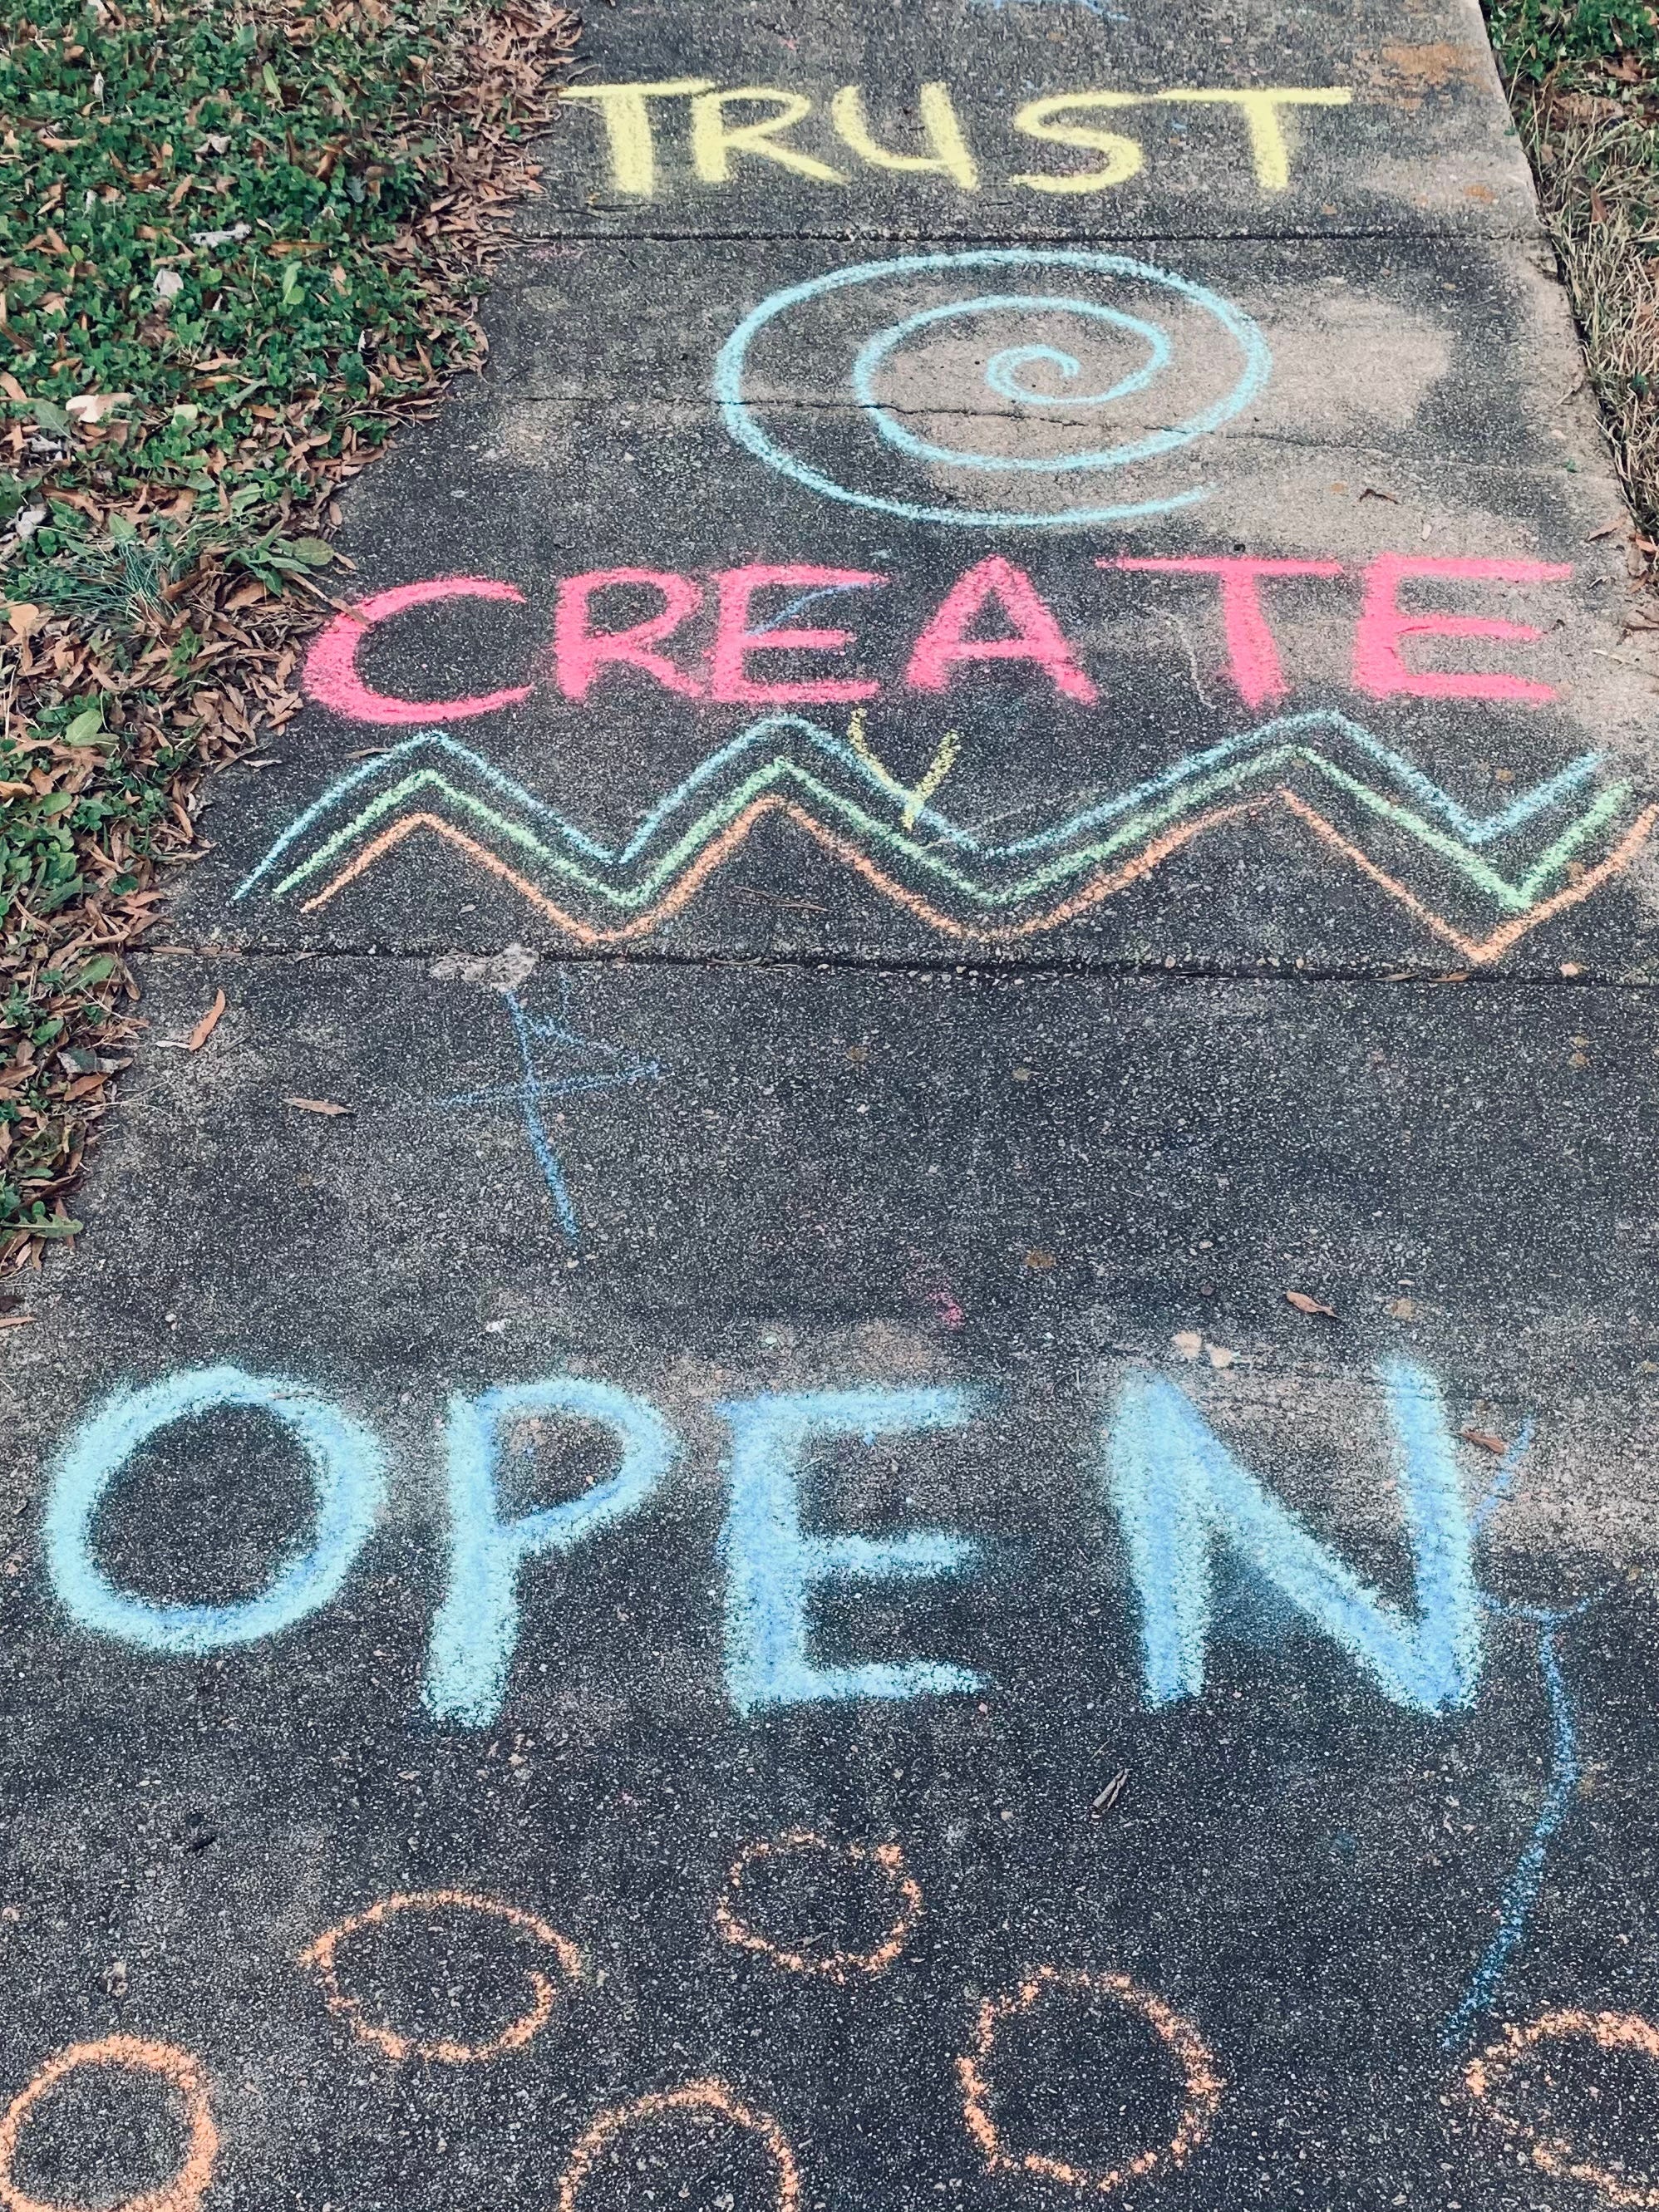 TRUST
CREATE
OPEN